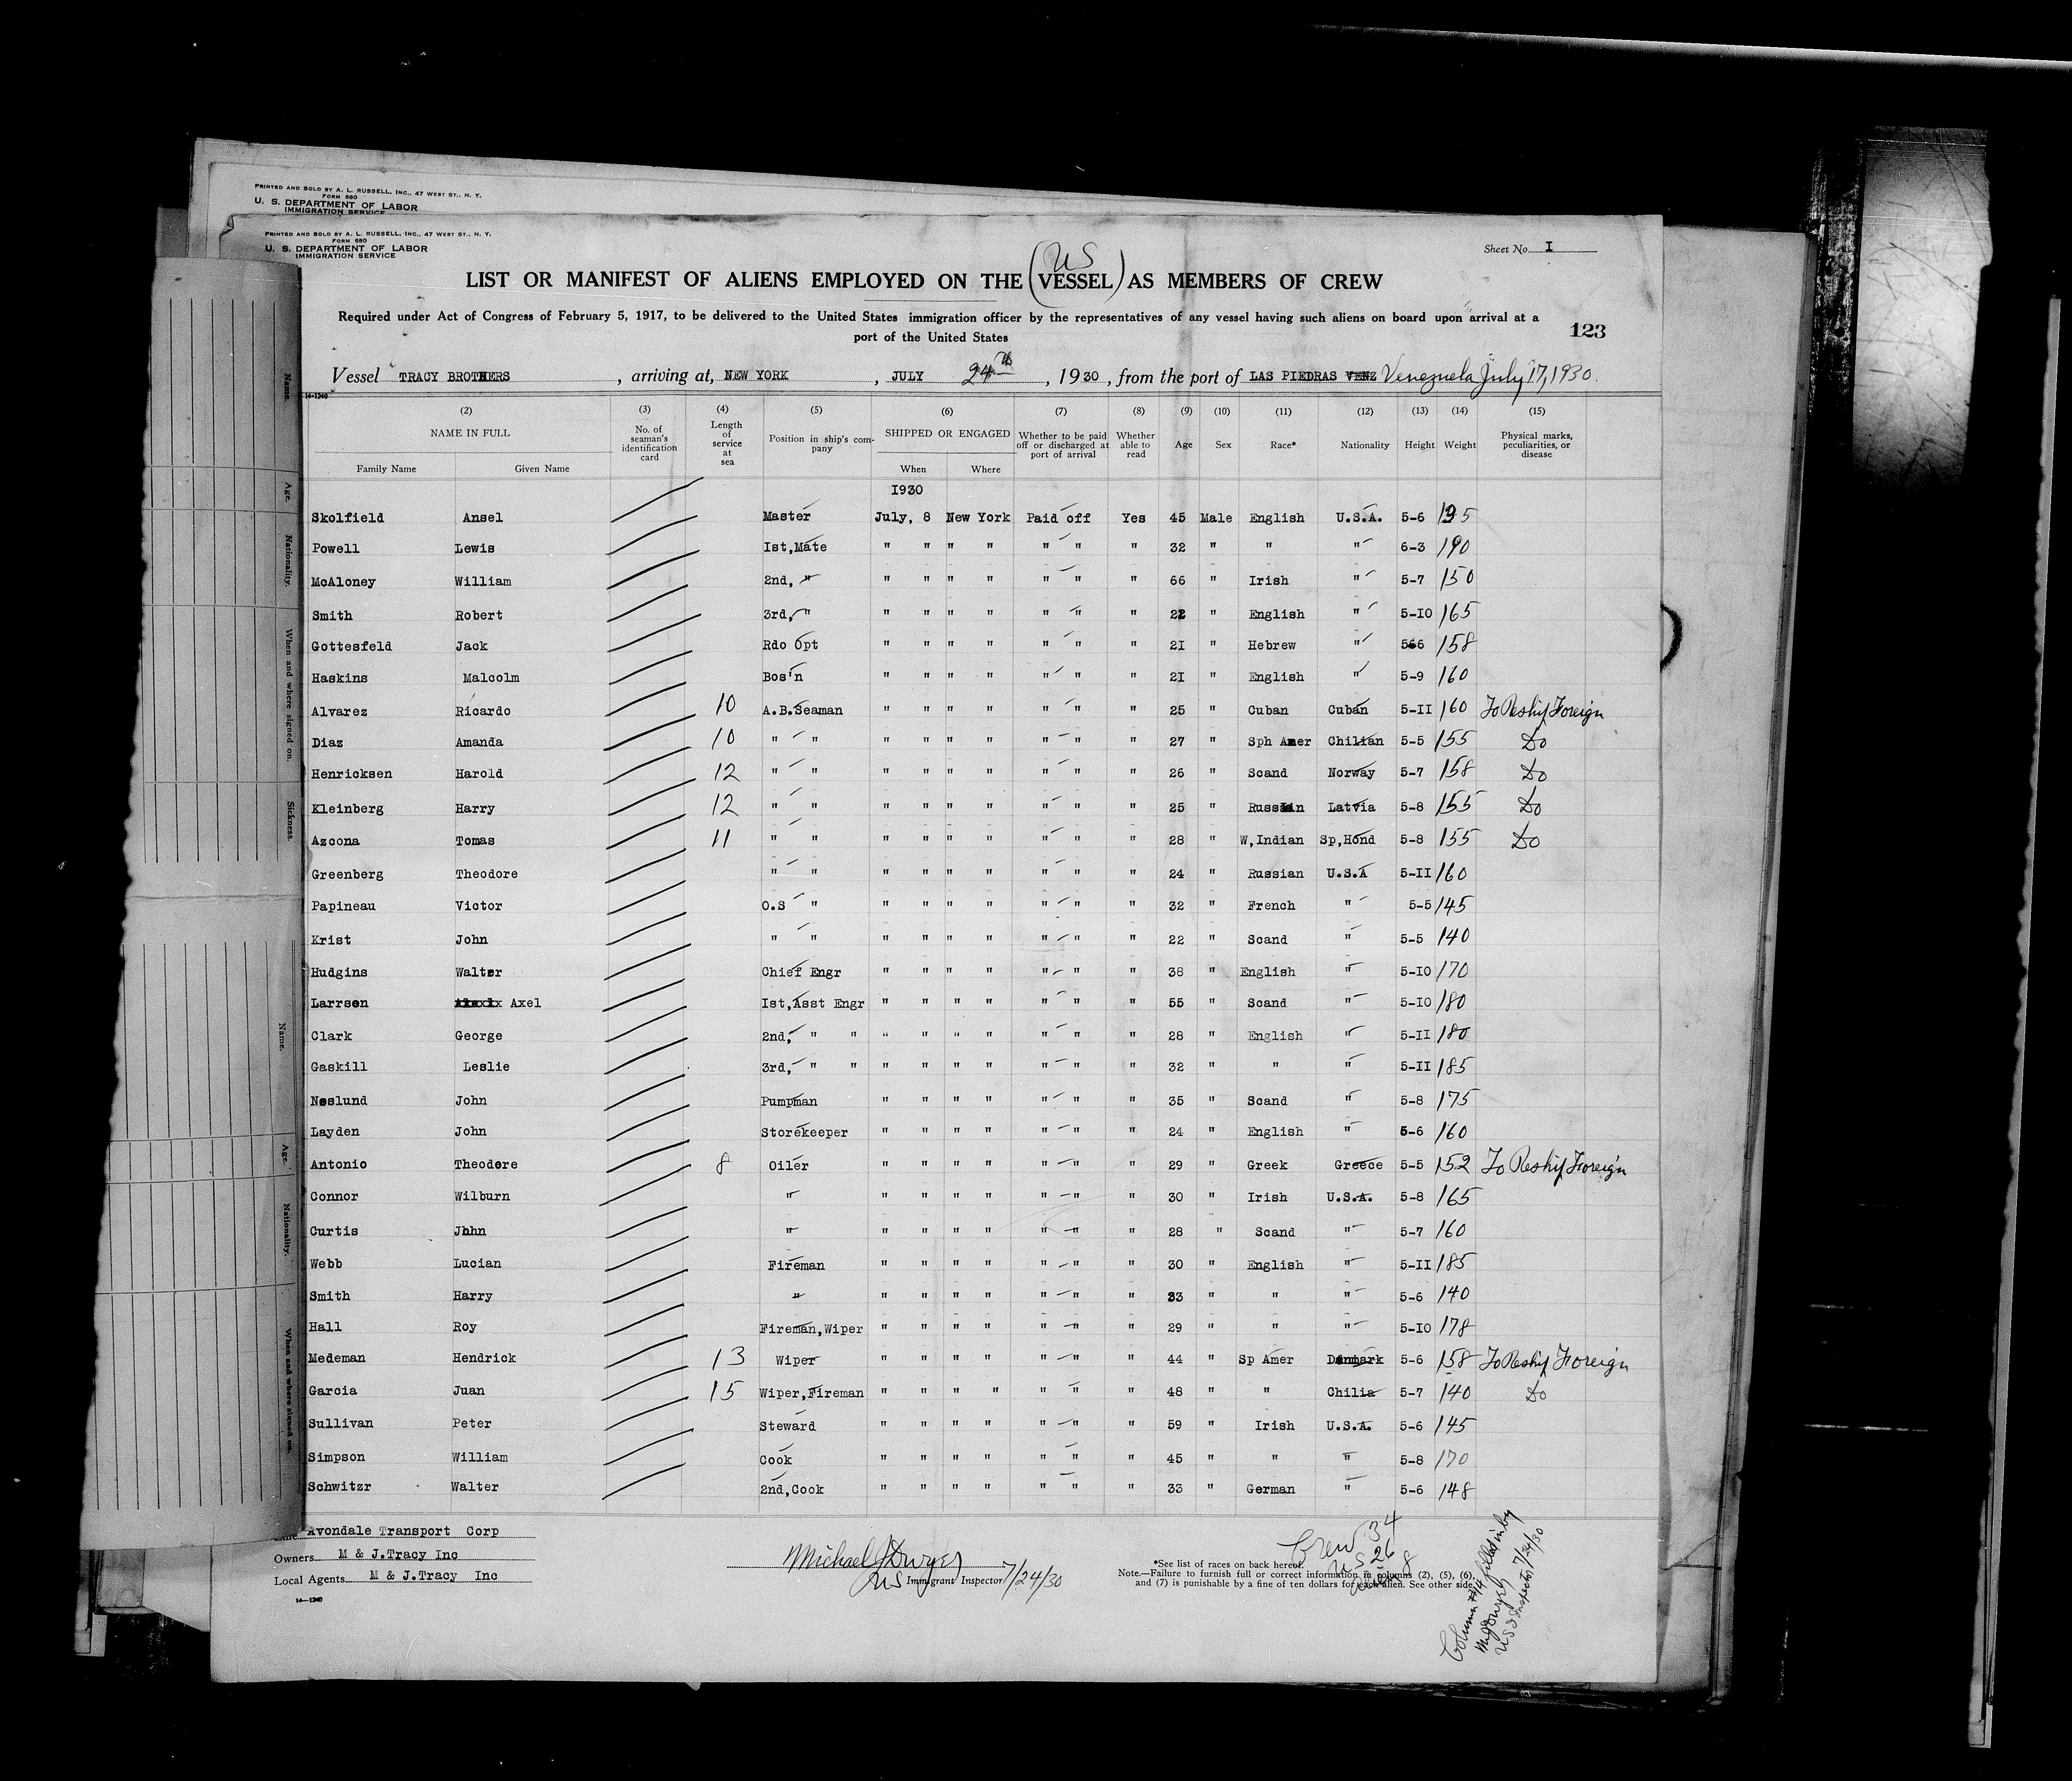 PRINTED AND SOLD BY A. L. RUSSELL, INC., 47 WEST ST., N. Y.
FORM 680
U. S. DEPARTMENT OF LABOR
IMMIGRATION SERVICE
PRINTED AND SOLD BY A. L. RUSSELL, INC., 47 WEST ST., N. Y.
FORM 680
U. S. DEPARTMENT OF LABOR
IMMIGRATION SERVICE
Sheet No. I
US
LIST OR MANIFEST OF ALIENS EMPLOYED ON THE (VESSEL) AS MEMBERS OF CREW
Required under Act of Congress of February 5, 1917, to be delivered to the United States immigration officer by the representatives of any vessel having such aliens on board upon arrival at a
port of the United States
123
Vessel TRACY BROTHERS, arriving at, NEW YORK, JULY 24th, 1930, from the port of LAS PIEDRAS VENZ Venezuela July 17, 1930.
14-1240
(2) (3) (4) (5) (6) (7) (8) (9) (10) (11) (12) (13) (14) (15)
NAME IN FULL No. of seaman's identification card Length of service at sea Position in ship's company SHIPPED OR ENGAGED Whether to be paid off or discharged at port of arrival Whether able to read Age Sex Race* Nationality Height Weight Physical marks, peculiarities, or disease
Family Name Given Name When Where
1930
Skolfield Ansel Master July, 8 New York Paid off Yes 45 Male English U.S.A. 5-6 195
Powell Lewis Ist,Mate " " " " " " " 32 " " " 6-3 190
McAloney William 2nd, " " " " " " " " 66 " Irish " 5-7 150
Smith Robert 3rd, " " " " " " " " 22 " English " 5-IO 165
Gottesfeld Jack Rdo Opt " " " " " " " 2I " Hebrew " 566 158
Haskins Malcolm Bos'n " " " " " " " 2I " English " 5-9 160
Alvarez Ricardo 10 A.B.Seaman " " " " " " " 25 " Cuban Cuban 5-II 160 To Reship Foreign
Diaz Amanda 10 " " " " " " " " " 27 " Sph Amer Chilian 5-5 155 Do
Henricksen Harold 12 " " " " " " " " " 26 " Scand Norway 5-7 158 Do
Kleinberg Harry 12 " " " " " " " " " 25 " Russian Latvia 5-8 155 Do
Azcona Tomas 11 " " " " " " " " " 28 " W,Indian Sp,Hond 5-8 155 Do
Greenberg Theodore " " " " " " " " " 24 " Russian U.S.A 5-II 160
Papineau Victor O.S " " " " " " " " 32 " French " 5-5 145
Krist John " " " " " " " " " 22 " Scand " 5-5 140
Hudgins Walter Chief Engr " " " " " " " 38 " English " 5-IO 170
Larrsen Axel Ist,Asst Engr " " " " " " " 55 " Scand " 5-IO 180
Clark George 2nd, " " " " " " " " " 28 " English " 5-II 180
Gaskill Leslie 3rd, " " " " " " " " " 32 " " " 5-II 185
Neslund John Pumpman " " " " " " " 35 " Scand " 5-8 175
Layden John Storekeeper " " " " " " " 24 " English " 5-6 160
Antonio Theodore 8 Oiler " " " " " " " 29 " Greek Greece 5-5 152 To Reship Foreign
Connor Wilburn " " " " " " " " 30 " Irish U.S.A. 5-8 165
Curtis Jhhn " " " " " " " " 28 " Scand " 5-7 160
Webb Lucian Fireman " " " " " " " 30 " English " 5-II 185
Smith Harry " " " " " " " " 33 " " " 5-6 140
Hall Roy Fireman,Wiper " " " " " " " 29 " " " 5-IO 178
Medeman Hendrick 13 Wiper " " " " " " " 44 " Sp Amer Denmark 5-6 158 To Reship Foreign
Garcia Juan 15 Wiper,Fireman " " " " " " " 48 " " Chilia 5-7 140 Do
Sullivan Peter Steward " " " " " " " 59 " Irish U.S.A. 5-6 145
Simpson William Cook " " " " " " " 45 " " " 5-8 170
Schwitzr Walter 2nd,Cook " " " " " " " 33 " German " 5-6 148
Avondale Transport Corp
Owners M & J.Tracy Inc
Local Agents M & J.Tracy Inc
14-1240
Michael J Dwyer
US Immigrant Inspector 7/24/30
Crew 34
US 26
Alien 8
*See list of races on back hereof.
Note.—Failure to furnish full or correct information in columns (2), (5), (6),
and (7) is punishable by a fine of ten dollars for each alien. See other side.
Column #14 filled in by
M J Dwyer
US Inspector 7/24/30
Name.
Age.
Nationality.
When and where signed on.
Sickness.
Name.
Age.
Nationality.
When and where signed on.